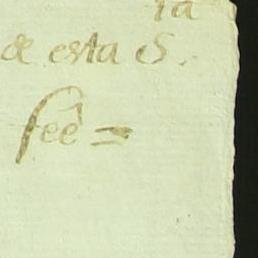 ia
de esta S.
feê =